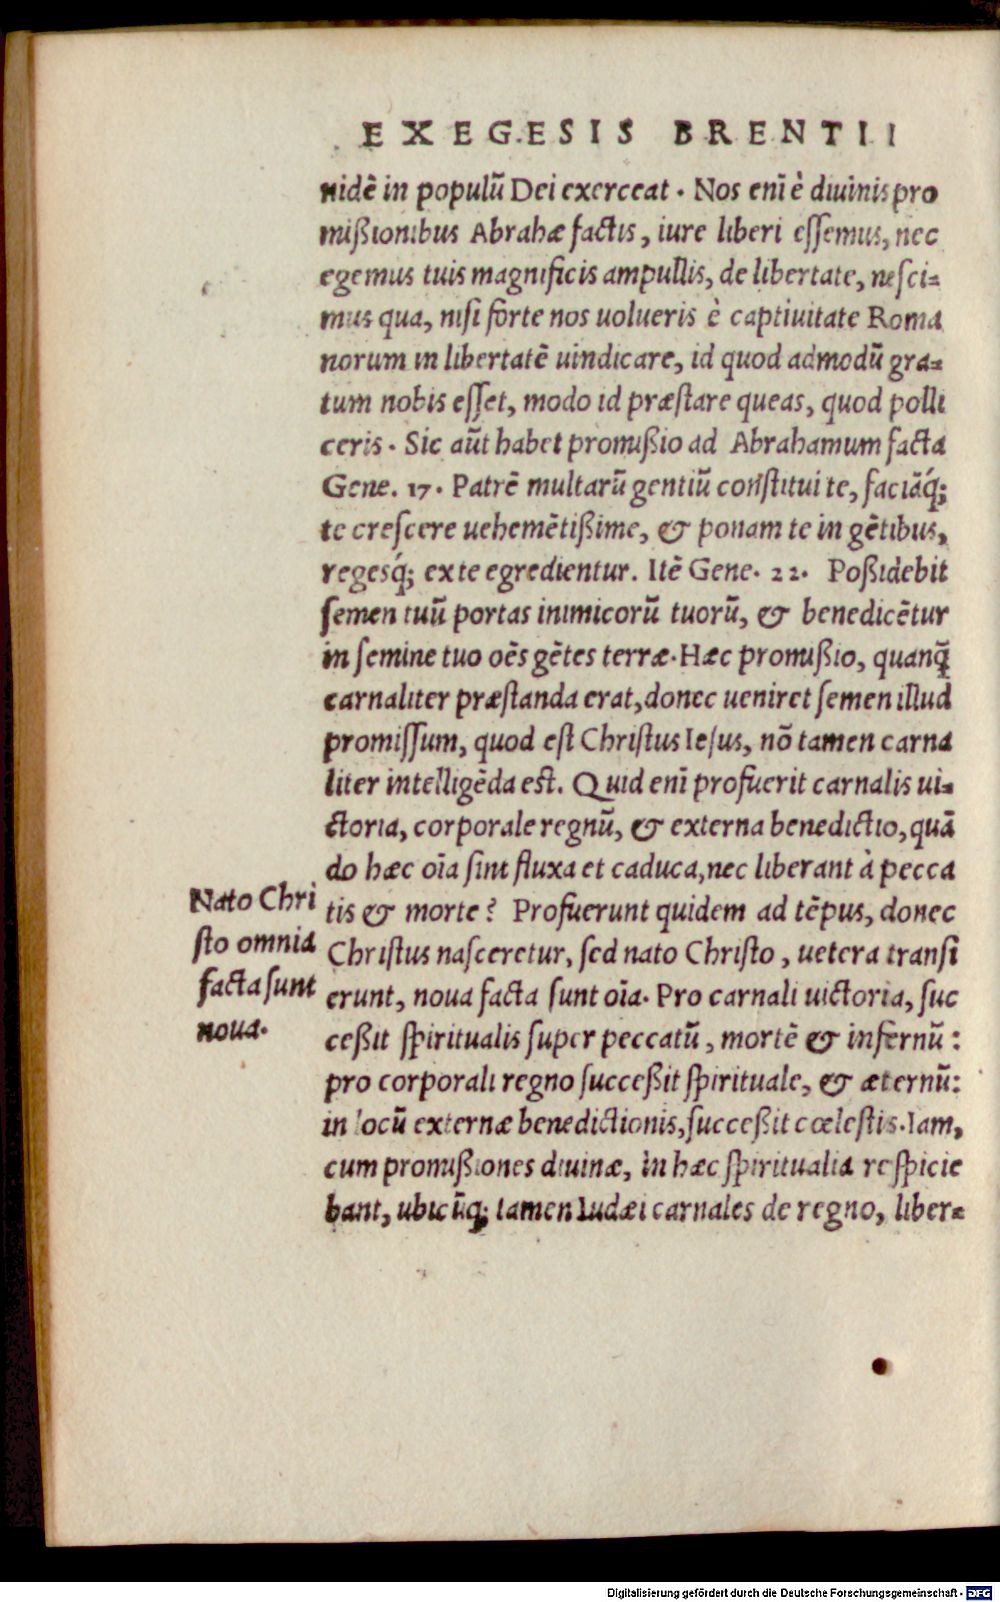 EXEGESIS BRENTII
nidē in populū Dei exerceat. Nos enī è diuinis pro
mißionibus Abrahæ factis, iure liberi eſſemus, nec
egemus tuis magnificis ampullis, de libertate, neſci-
mus qua, niſi forte nos uolueris è captiuitate Roma
norum in libertatē uindicare, id quod admodū gra-
tum nobis eſſet, modo id præſtare queas, quod polli
ceris. Sic aūt habet promißio ad Abrahamum facta
Gene. 17. Patrē multarū gentiū conſtitui te, faciāq́;
te creſcere uehemētißime, & ponam te in gētibus,
regesq́; ex te egredientur. Itē Gene. 22. Poßidebit
ſemen tuū portas inimicorū tuorū, & benedicētur
in ſemine tuo oēs gētes terræ. Hæc promißio, quanq̄
carnaliter præſtanda erat, donec ueniret ſemen illud
promiſſum, quod eſt Chriſtus Ieſus, nō tamen carna
liter intelligēda eſt. Quid enī profuerit carnalis ui-
ctoria, corporale regnū, & externa benedictio, quā
do hæc oīa ſint fluxa et caduca, nec liberant à pecca
tis & morte? Profuerunt quidem ad tēpus, donec
Chriſtus naſceretur, ſed nato Chriſto, uetera tranſi
erunt, noua facta ſunt oīa. Pro carnali uictoria, ſuc
ceßit ſpiritualis ſuper peccatū, mortē & infernū:
pro corporali regno ſucceßit ſpirituale, & æternū:
in locū externæ benedictionis, ſucceßit cœleſtis. Iam,
cum promißiones diuinæ, in hæc ſpiritualia reſpicie
bant, ubicūq; tamen Iudæi carnales de regno, liber-
Nato Chri
ſto omnia
facta ſunt
noua.
Digitalisierung gefördert durch die Deutsche Forschungsgemeinschaft - DFG